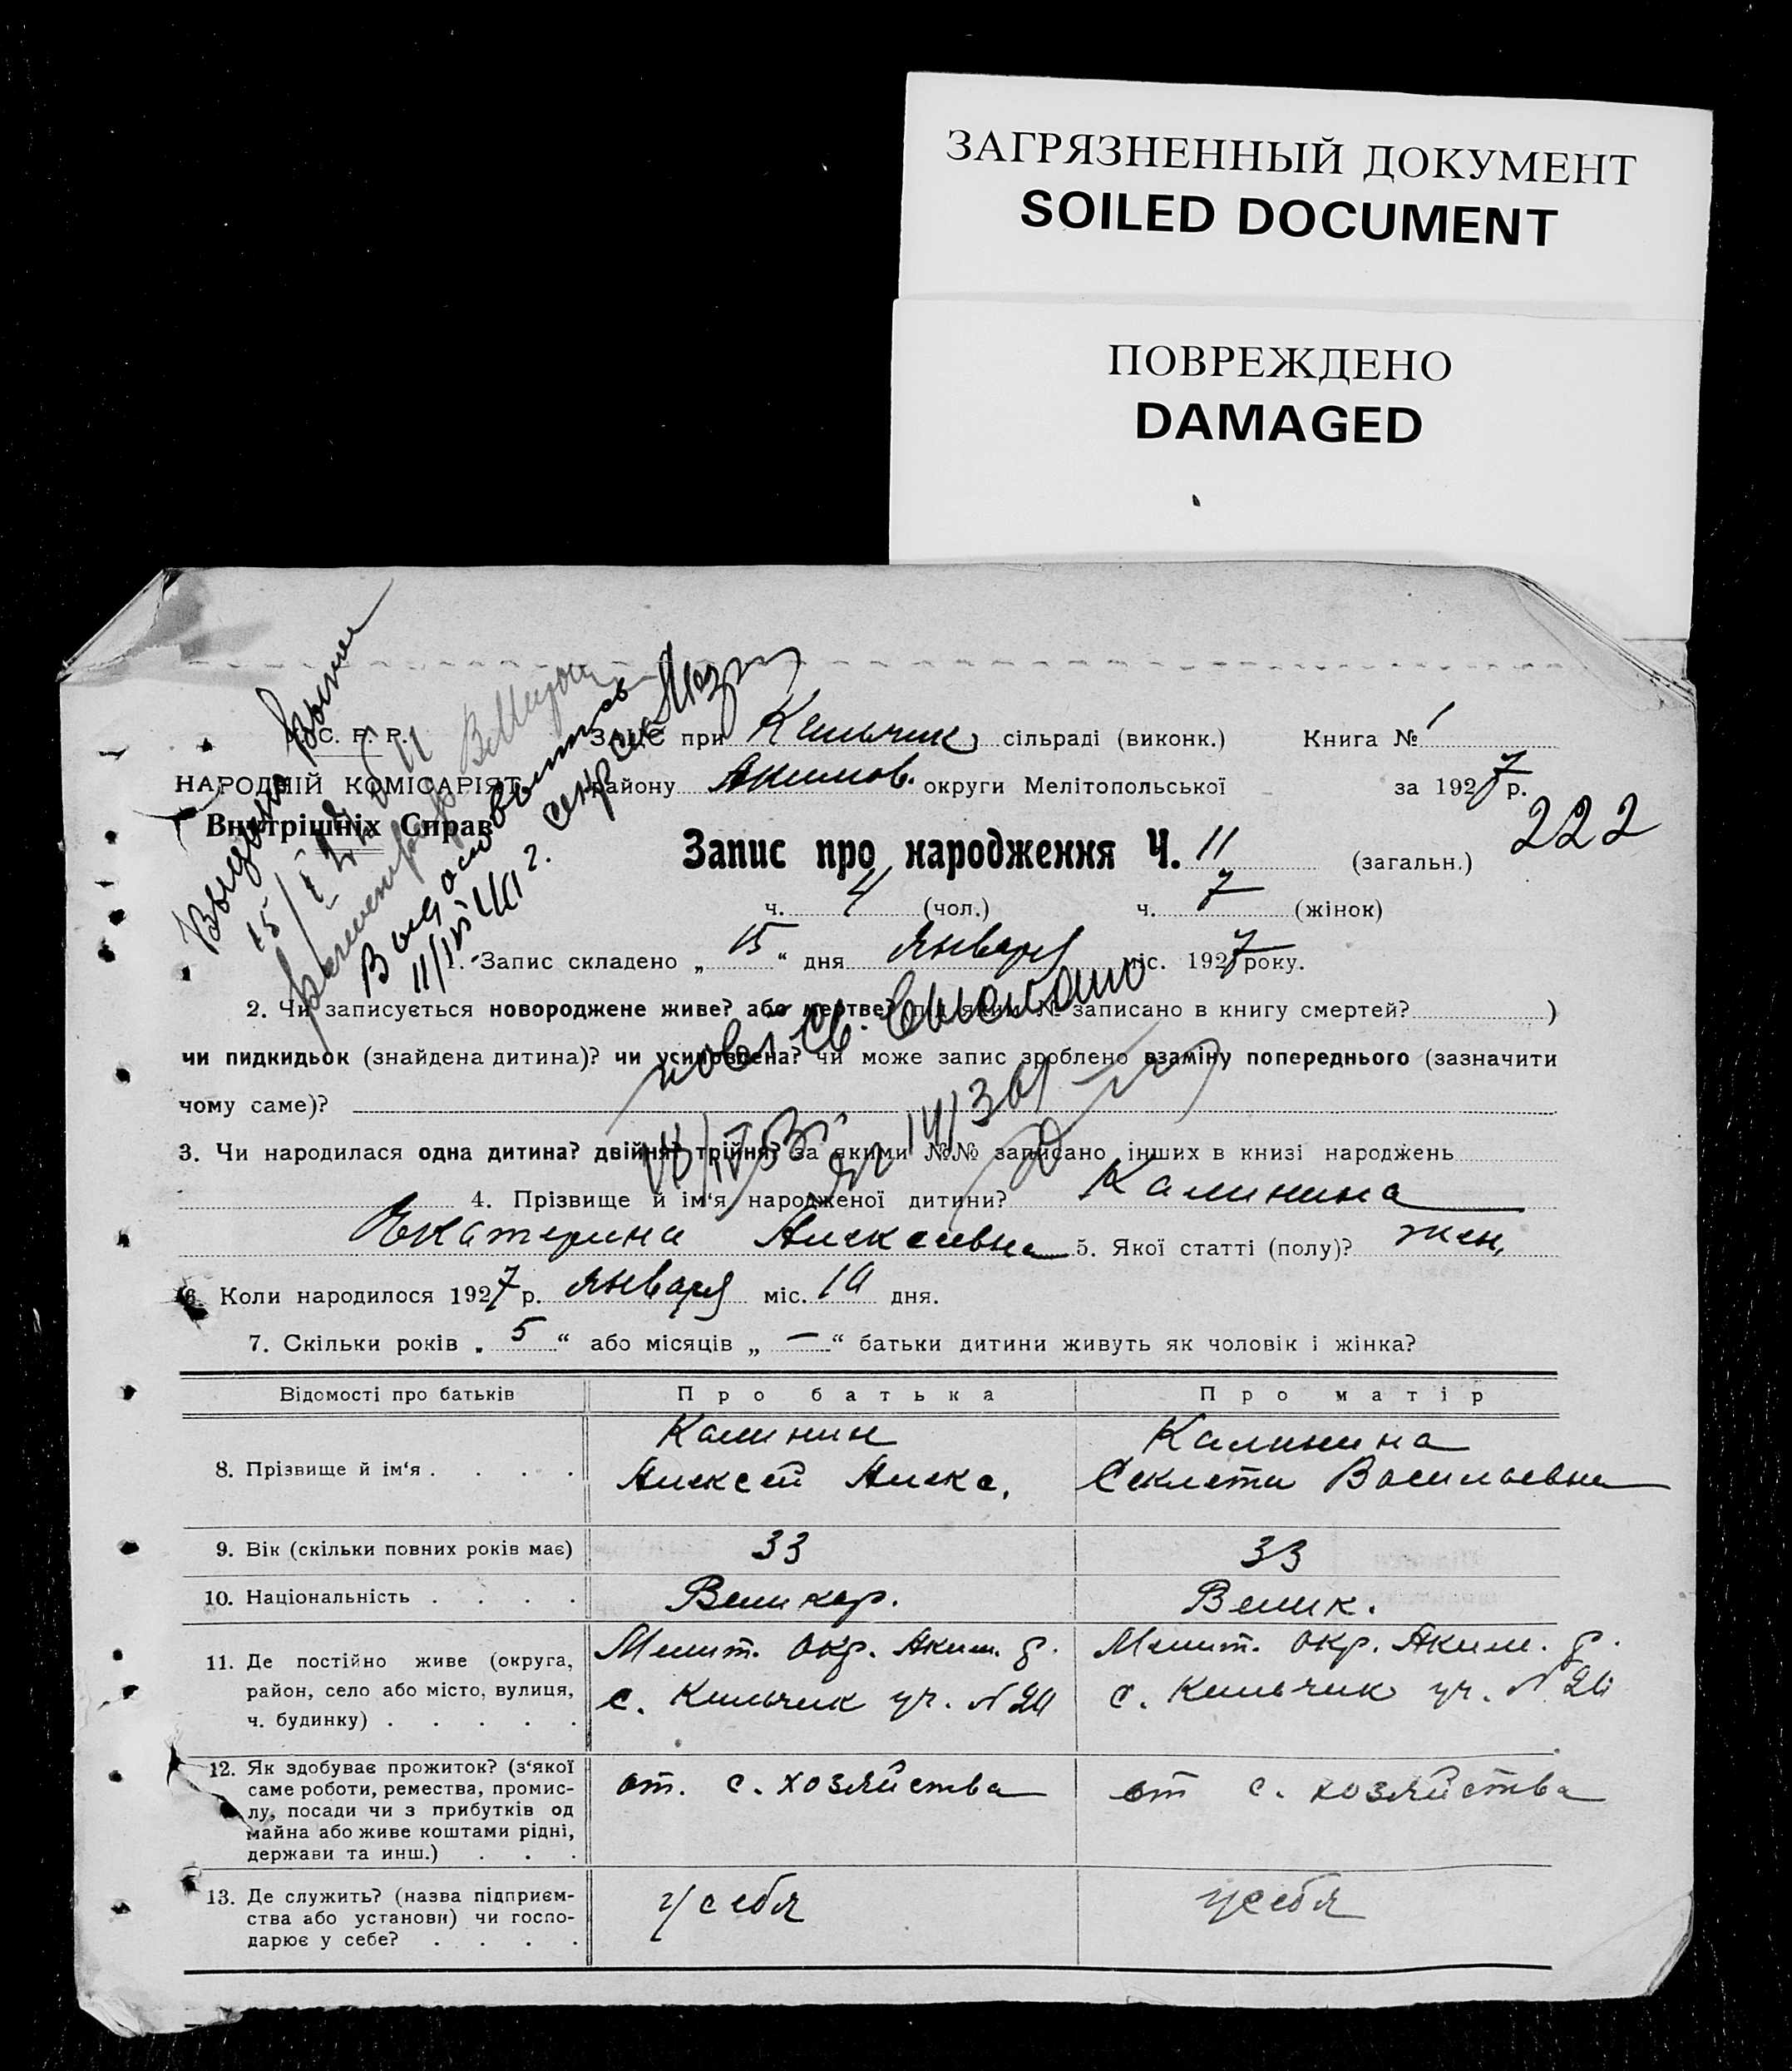 ЗАГРЯЗНЕННЫЙ ДОКУМЕНТ
SOILED DOCUMENT
ПОВРЕЖДЕНО
DAMAGED
С. Р. Р.
ЗАГС при Кильчик сільраді (виконк.) Книга № 1
НАРОДНІЙ КОМІСАРІЯТ
району Акимов. округи Мелітопольської за 1927 р.
Внутрішніх Справ
222
Запис про народження Ч. 11 (загальн.)
ч. 4 (чол.) ч. 7 (жінок)
Выдано
15/I
1. Запис складено „ 15 “ дня Января міс. 1927 року.
2. Чи записується новороджене живе? або мертве? під яким № записано в книгу смертей? )
чи пидкидьок (знайдена дитина)? чи усиновлена? чи може запис зроблено взаміну попереднього (зазначити
чому саме)?
3. Чи народилася одна дитина? двійня? трійня? за якими №№ записано інших в книзі народжень
4. Прізвище й ім‘я народженої дитини? Калинина
Екатерина Алексеевна 5. Якої статті (полу)? жен.
6. Коли народилося 1927 р. Января міс. 10 дня.
7. Скільки років „ 5 “ або місяців „ — “ батьки дитини живуть як чоловік і жінка?
Відомості про батьків Про батька Про матір
8. Прізвище й ім‘я . . . . Калинин Алексей Алекс. Калинина Секлета Васильевна
9. Вік (скільки повних років має) 33 33
10. Національність . . . . Великор. Велик.
11. Де постійно живе (округа,
район, село або місто, вулиця,
ч. будинку) . . . . .
Мелит. окр. Аким. р.
с. Кильчик уч. №
Мелит. окр. Аким. р.
с. Кильчик уч. №
12. Як здобуває прожиток? (з‘якої
саме роботи, ремества, промис-
лу, посади чи з прибутків од
майна або живе коштами рідні,
держави та инш.) . . .
от. с. хозяйства
от с. хозяйства
13. Де служить? (назва підприєм-
ства або установи) чи госпо-
дарює у себе? . . . .
у себя
у себя